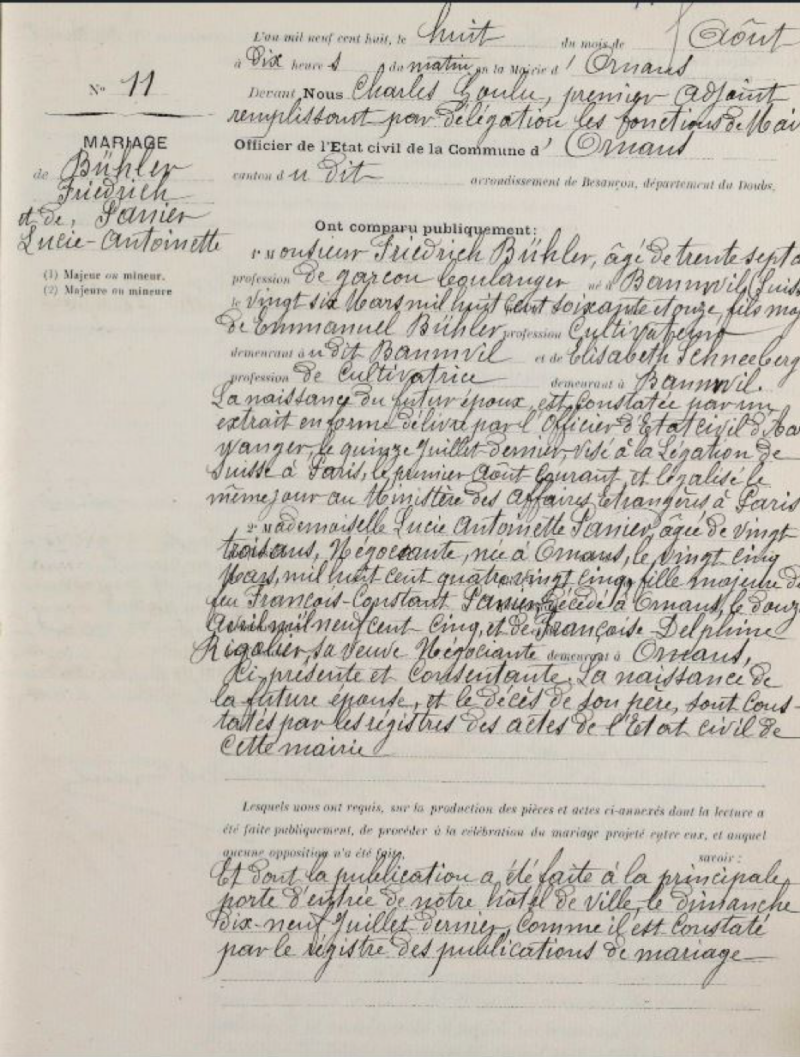 L'an mil neuf cent huit, le huit du mois de Août
à Dix heures du matin en la Mairie d'Ornans
Nº 11
Devant Nous Charles Goulu, premier Adjoint
remplissant par délégation les fonctions de Mai
Officier de l'Etat civil de la Commune d'Ornans
canton du dit arrondissement de Besançon, département du Doubs.
MARIAGE
de Bühler
Friedrich
et de, Panier
Lucie-Antoinette
(1) Majeur ou mineur.
(2) Majeure ou mineure
Ont comparu publiquement:
1º Monsieur Friedrich Bühler, âgé de trente sept a
profession de garçon boulanger né à Bannwil (Suiss
le vingt six Mars mil huit cent soixante et onze, fils maj
de Emmanuel Bühler profession Cultivateur
demeurant à u dit Bannwil et de Elisabeth Schneeberg
profession de Cultivatrice demeurant à Bannwil.
La naissance du futur époux, est constatée par un
extrait en forme délivré par l'Officier d'Etat civil d'Aa
wanger, le quinze Juillet dernier visé à la Légation de
Suisse à Paris, le premier Août courant, et légalisé le
même jour au Ministère des Affaires étrangères à Paris
2º Mademoiselle Lucie Antoinette Panier, âgée de vingt
trois ans, Négociante, née à Ornans, le vingt cinq
Mars, mil huit cent quatre vingt cinq, fille majeure d
feu François-Constant Panier, décédé à Ornans, le douz
Avril mil neuf cent cinq, et de Françoise Delphine
Rigolier, sa veuve Négociante demeurant à Ornans,
Ci présente et consentante. La naissance de
la future épouse, et le décès de son père, sont cons-
tatés par les régistres des actes de l'Etat civil de
cette mairie
Lesquels nous ont requis, sur la production des pièces et actes ci-annexés dont la lecture a
été faite publiquement, de procéder à la célébration du mariage projeté entre eux, et auquel
aucune opposition n'a été faite. savoir:
Et dont la publication a été faite à la principale
porte d'entrée de notre hôtel de ville, le Dimanche
Dix-neuf Juillet dernier, comme il est constaté
par le régistre des publications de mariage